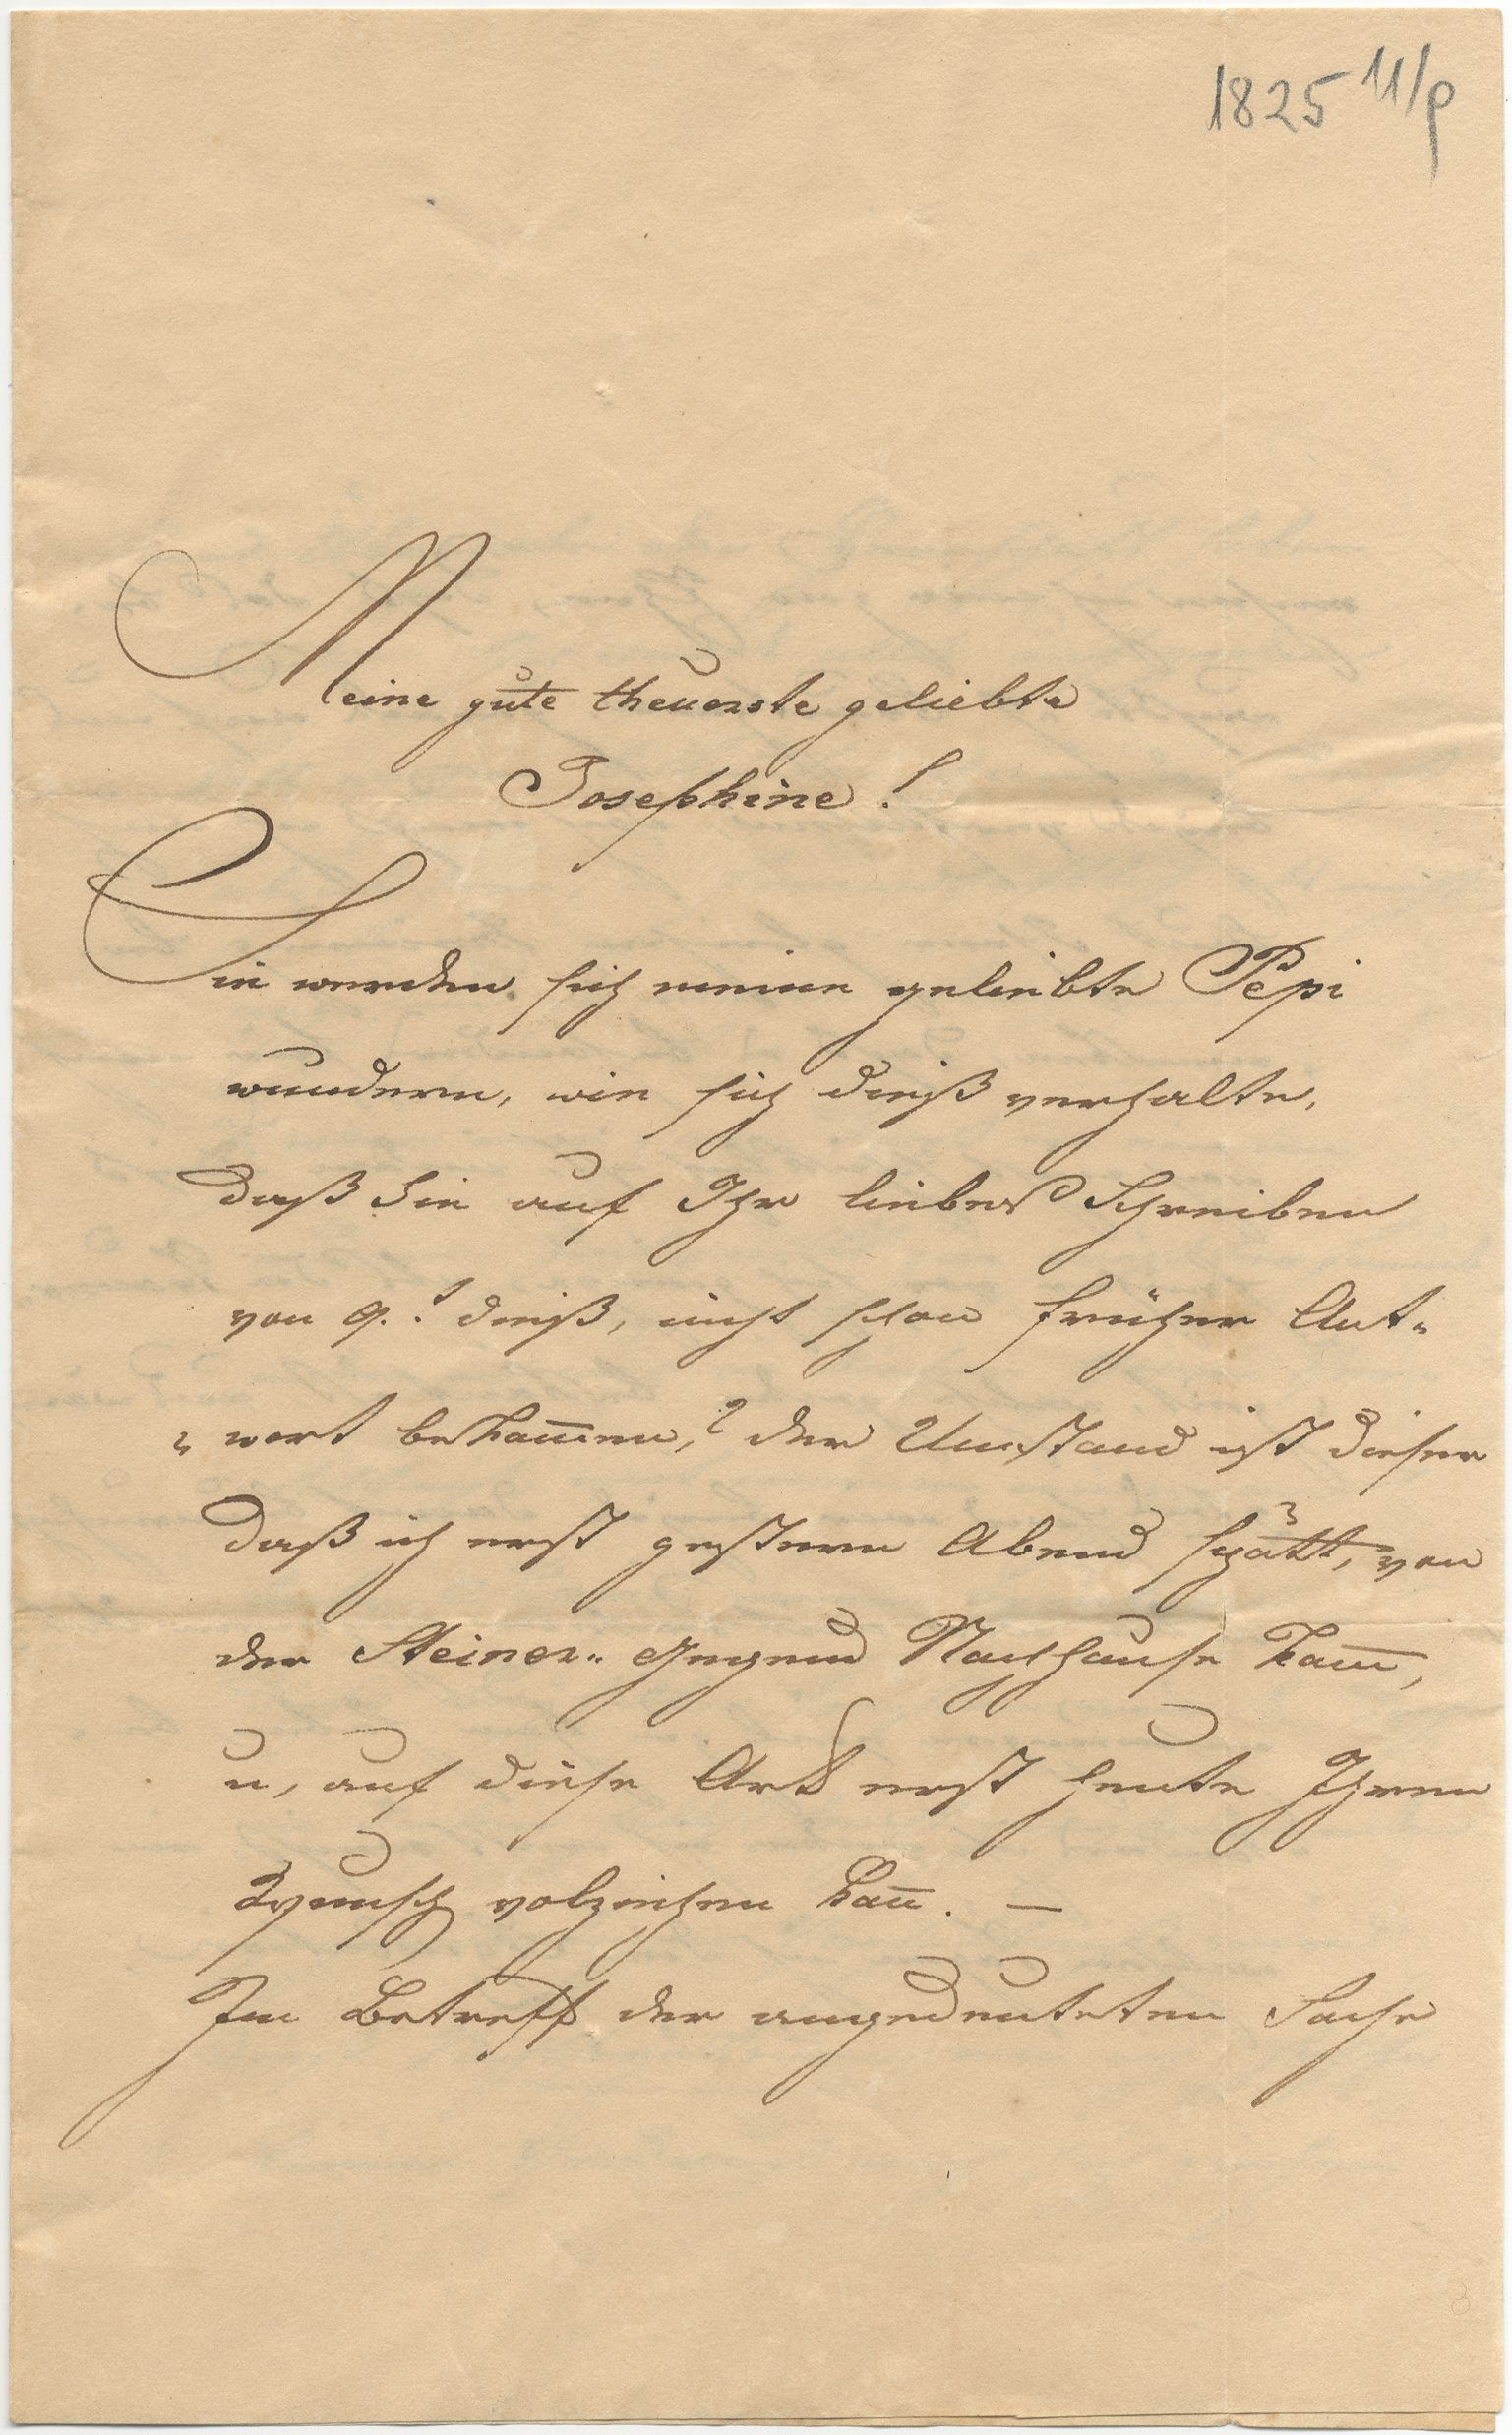 1825 11/9
Meine gute theuerste geliebte
Josephine !
Sie werden sich meine geliebte Pepi
wundern, wie sich dieß verhalte,
daß Sie auf Ihr liebes Schreiben
von 9.t dieß, nicht schon früher Ant„
„ wort bekam̅en,? der Umstand ist dieser
daß ich erst gestern Abend spätt, von
der Steiner„ Gegend Nachhause kam̅,
u, auf diese Art erst heute Ihren
Wunsch volziehen kan̅. —
Im Betreff der angedeuteten Sache